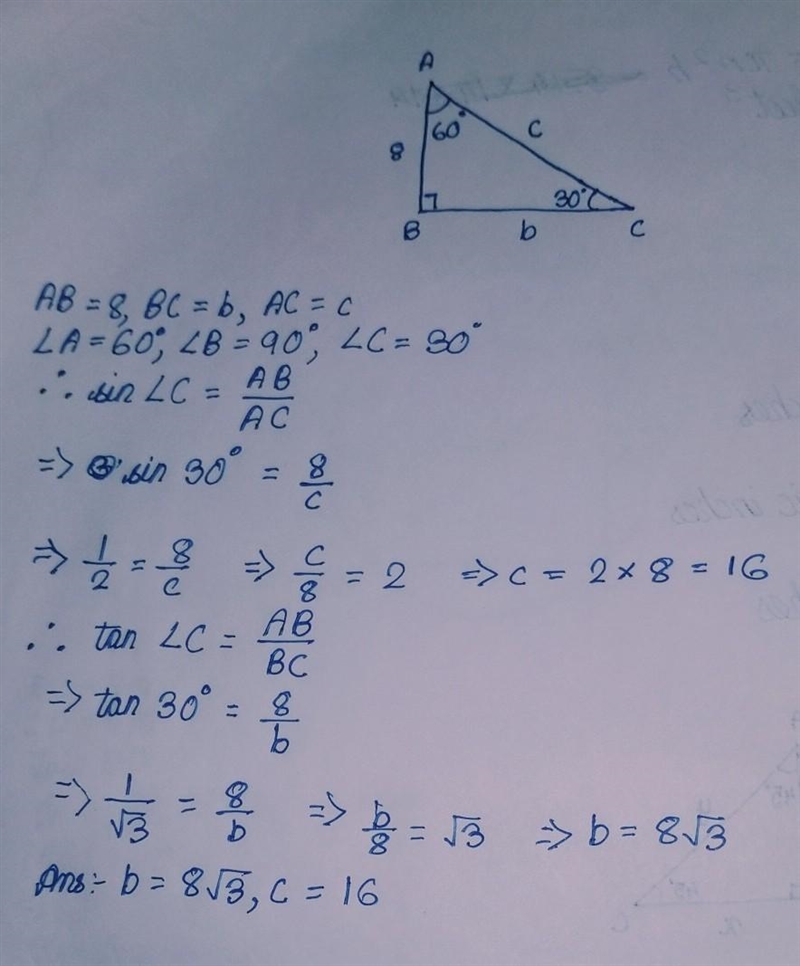 A
60°
8
c
30°
B
b
C
AB = 8, BC = b, AC = c
∠A = 60°, ∠B = 90°, ∠C = 30°
∴ sin ∠C = AB/AC
=> sin 30° = 8/c
=> 1/2 = 8/c => c/8 = 2 => c = 2 × 8 = 16
∴ tan ∠C = AB/BC
=> tan 30° = 8/b
=> 1/√3 = 8/b => b/8 = √3 => b = 8√3
Ans:- b = 8√3, c = 16